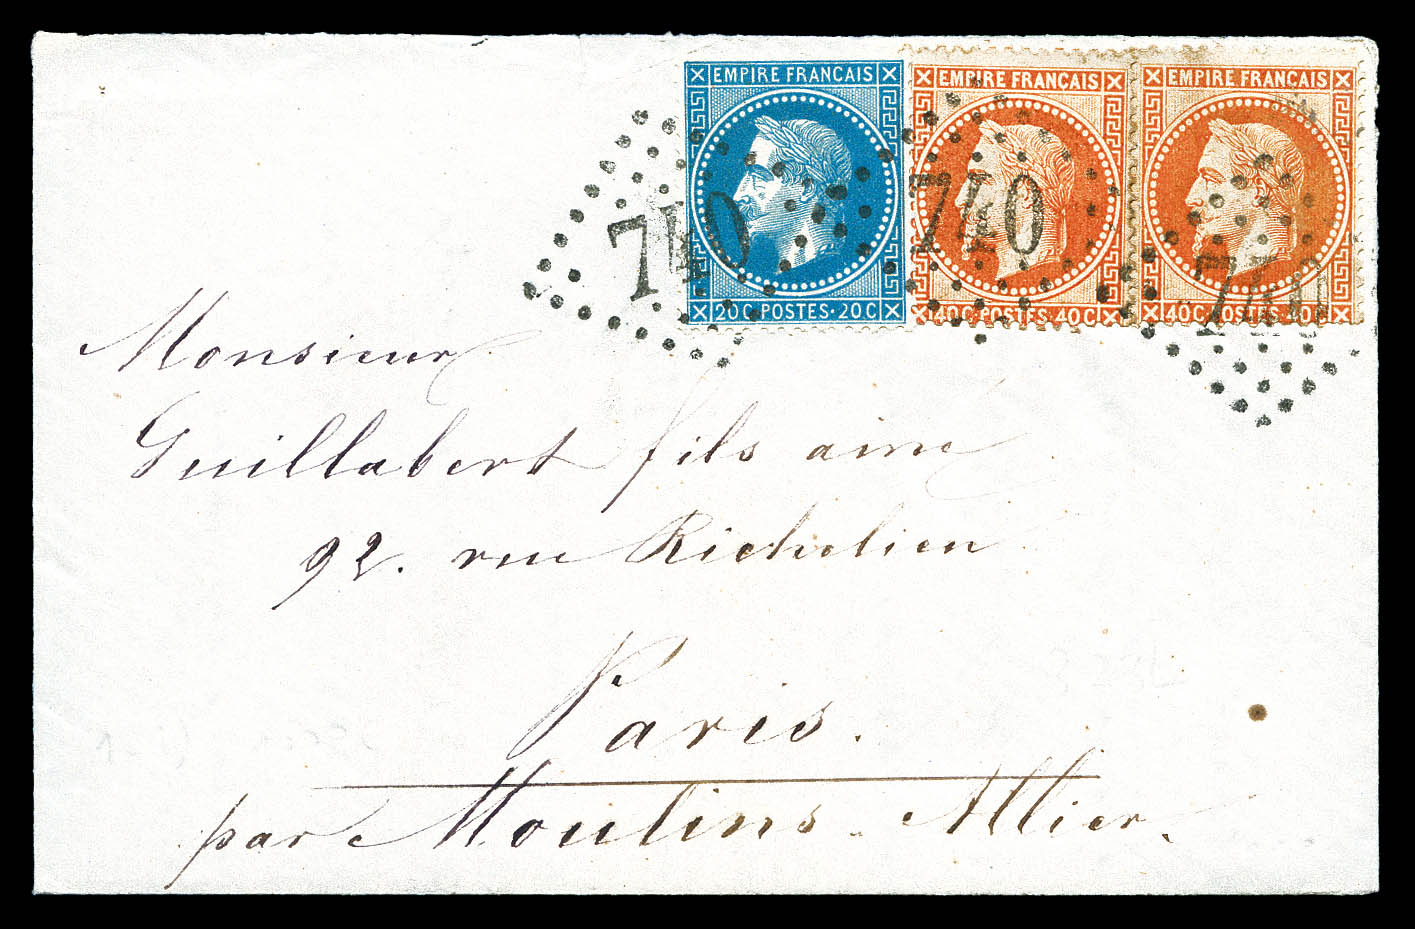 EMPIRE FRANÇAIS EMPIRE FRANÇAIS EMPIRE FRANÇAIS
740 740 740
20 C. POSTES. 20 C 40 C. POSTES. 40 C 40 C. POSTES. 40 C
Monsieur
Guillabert fils aine
92. rue Richelieu
Paris.
par Moulins - Allier.